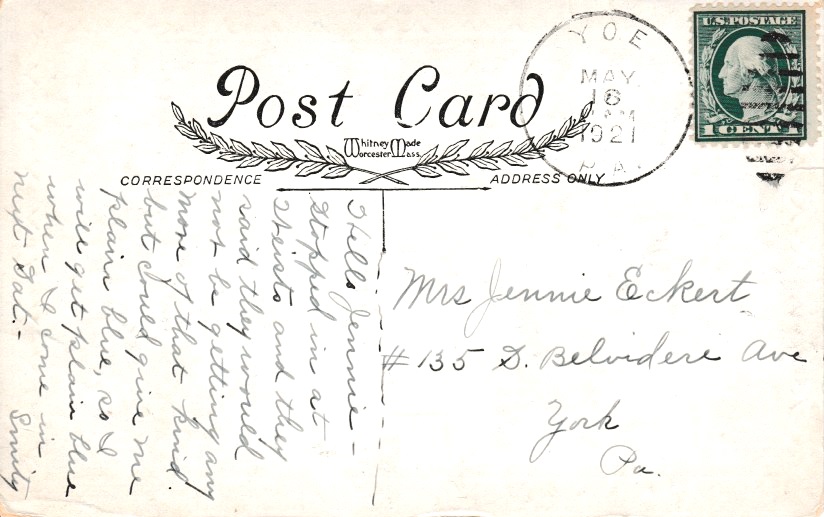 U.S. POSTAGE
1 CENT 1
YOE
MAY
16
1921
PA.
Post Card
Whitney Made
Worcester Mass.
CORRESPONDENCE
ADDRESS ONLY
Hello Jennie –
Stopped in at
Heists and they
said they would
not be getting any
more of that kind.
but could give me
plain blue, so I
will get plain blue
when I come in
next Sat. –
Mrs Jennie Eckert
# 135 S. Belvidere Ave
York
Pa.